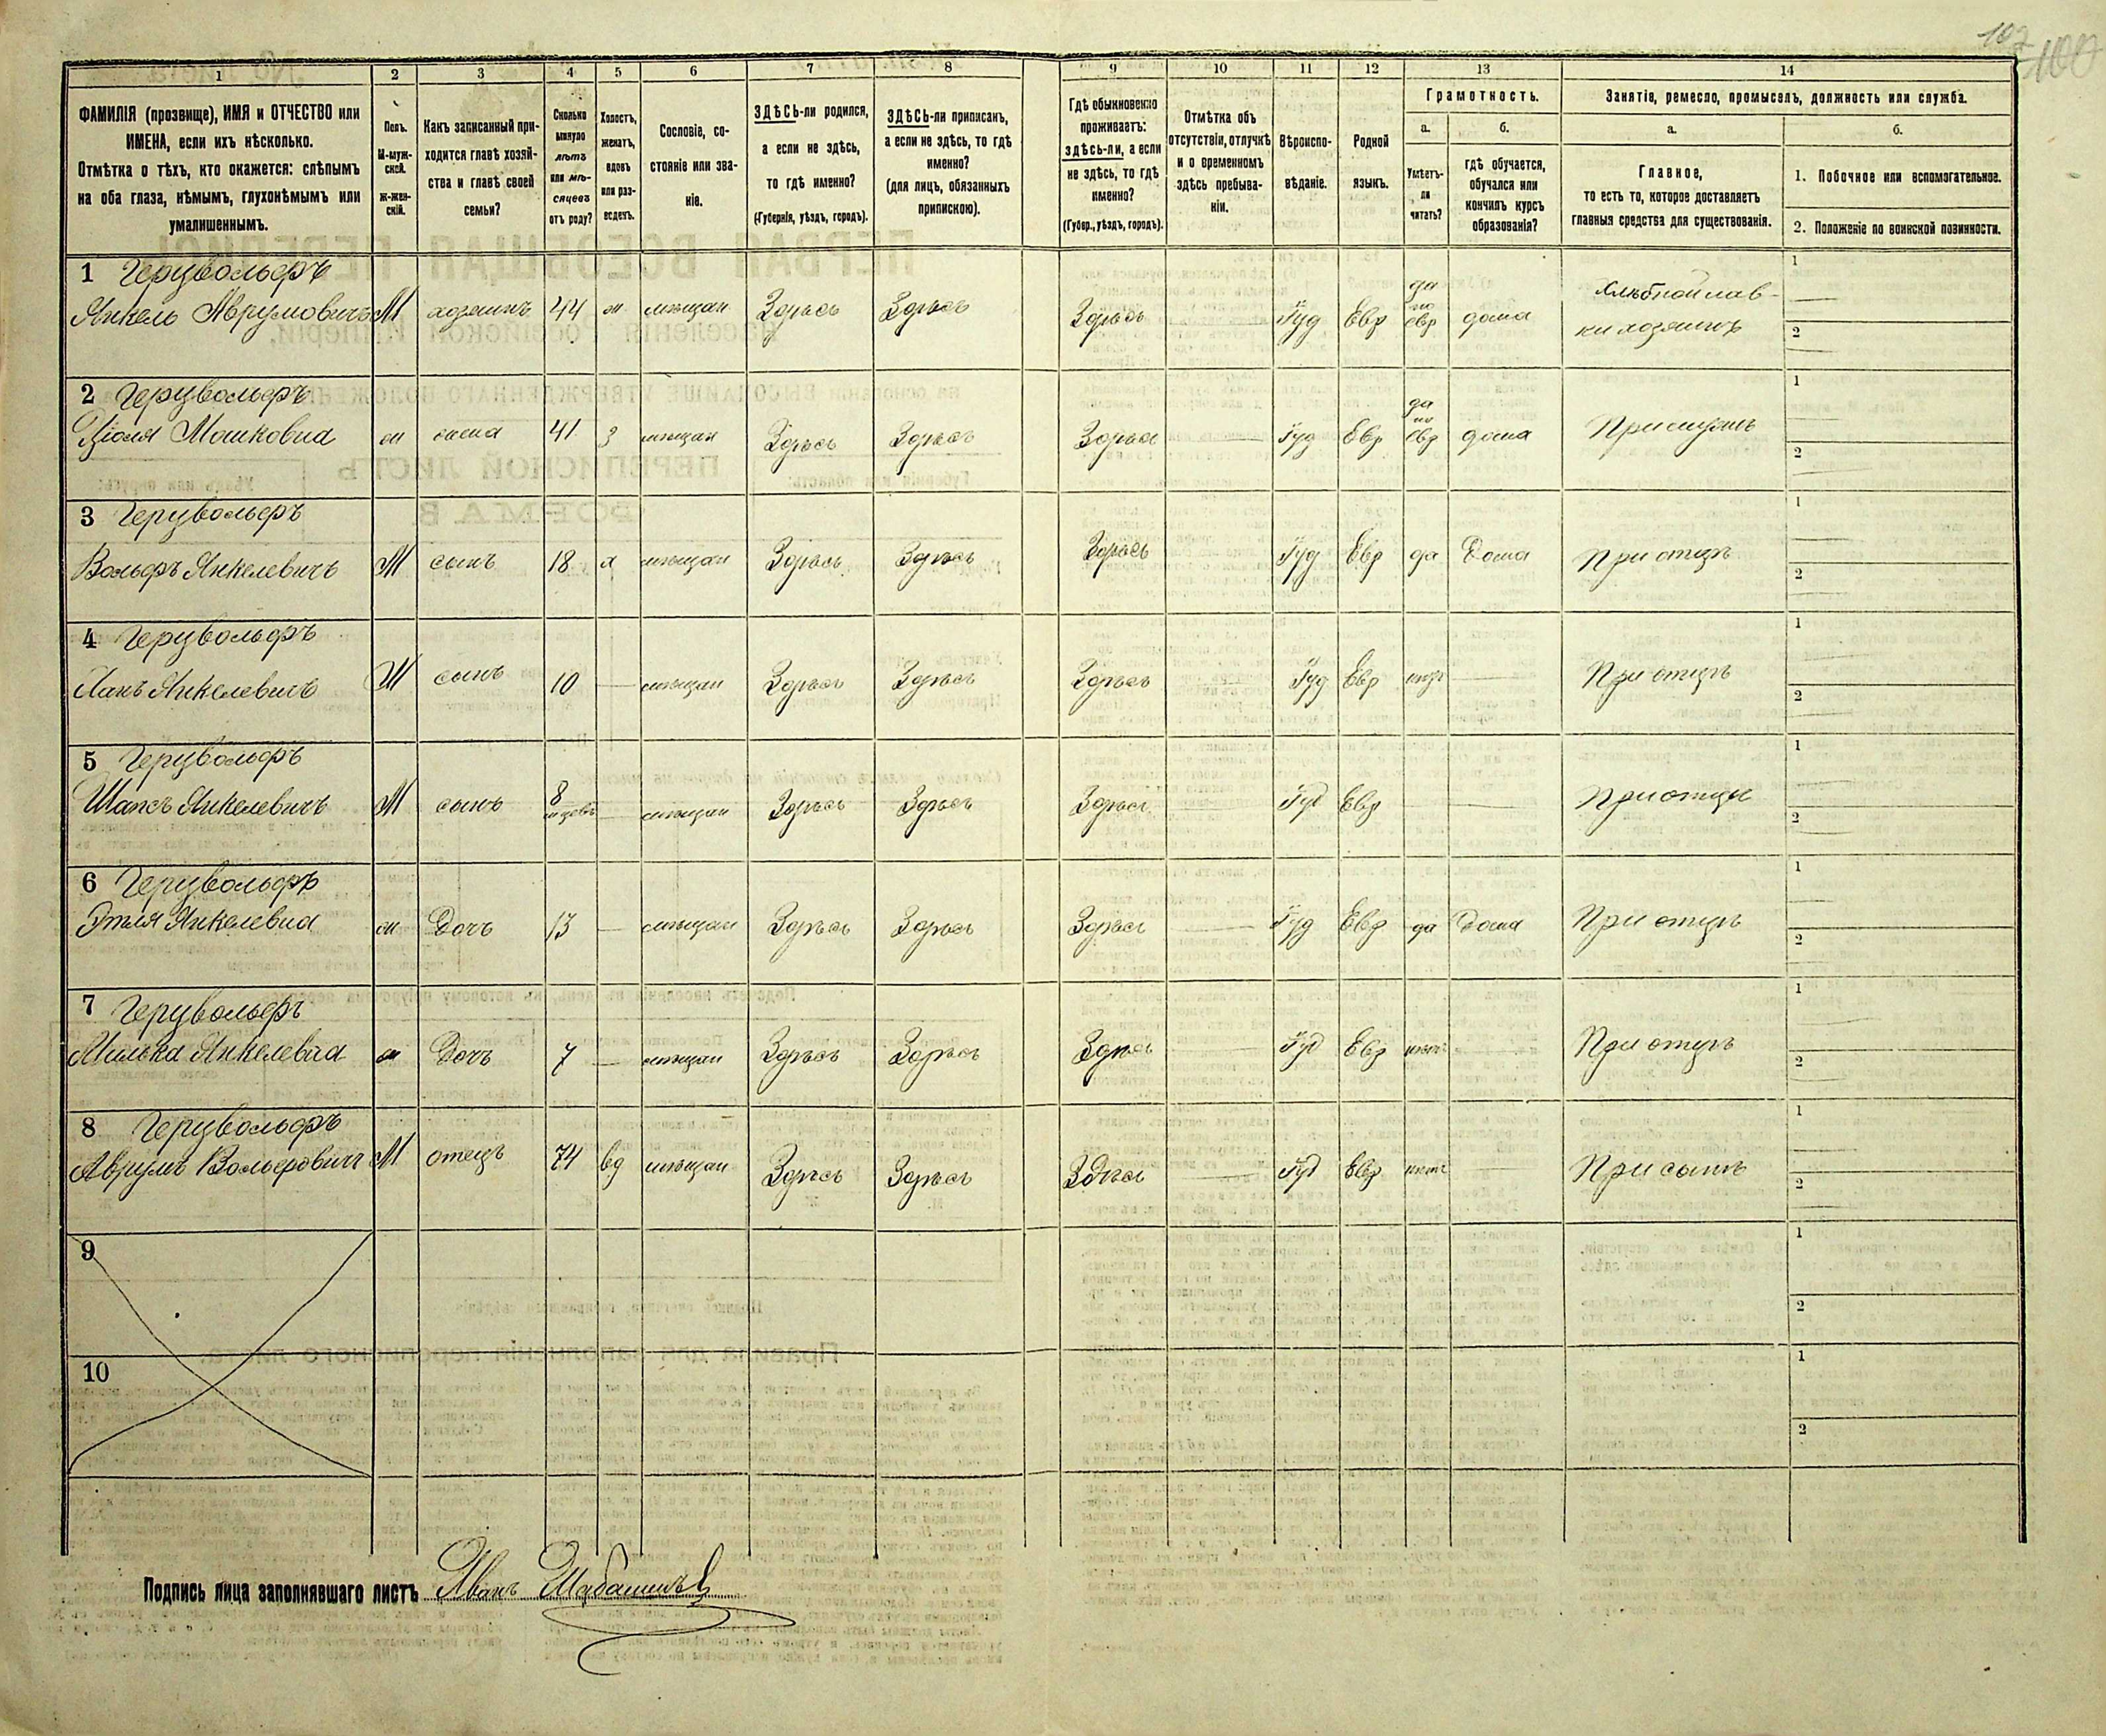 107
100
1 2 3 4 5 6 7 8 9 10 11 12 13 14
ФАМИЛІЯ (прозвище), ИМЯ и ОТЧЕСТВО или
ИМЕНА, если ихъ нѣсколько.
Отмѣтка о тѣхъ, кто окажется: слѣпымъ
на оба глаза, нѣмымъ, глухонѣмымъ или
умалишеннымъ.
Полъ.
М-муж-
ской.
Ж-жен-
скій.
Какъ записанный при-
ходится главѣ хозяй-
ства и главѣ своей
семьи?
Сколько
минуло
лѣтъ
или мѣ-
сяцевъ
отъ роду?
Холостъ,
женатъ,
вдовъ
или раз-
веденъ.
Сословіе, со-
стояніе или зва-
ніе.
ЗДѢСЬ-ли родился,
а если не здѣсь,
то гдѣ именно?
(Губернія, уѣздъ, городъ).
ЗДѢСЬ-ли приписанъ,
а если не здѣсь, то гдѣ
именно?
(для лицъ, обязанныхъ
припискою).
Гдѣ обыкновенно
проживаетъ:
здѣсь-ли, а если
не здѣсь, то гдѣ
именно?
(Губер., уѣздъ, городъ).
Отмѣтка объ
отсутствіи, отлучкѣ
и о временномъ
здѣсь пребыва-
ніи.
Вѣроиспо-
вѣданіе.
Родной
языкъ.
Грамотность.
а.
Умѣетъ-
ли
читать?
б.
гдѣ обучается,
обучался или
кончилъ курсъ
образованія?
Занятіе, ремесло, промыселъ, должность или служба.
а.
Главное,
то есть то, которое доставляетъ
главныя средства для существованія.
б.
1. Побочное или вспомогательное.
2. Положеніе по воинской повинности.
1 Герцвольфъ
Янкель Аврумовичъ М хозяинъ 44 ж мѣщан Здѣсь Здѣсь Здѣсь Іуд Евр да по евр дома Хлѣбной лав-
ки хозяинъ
1
2
2 Герцвольфъ
Мошковна ж жена 41 з мѣщан Здѣсь Здѣсь Здѣсь Іуд Евр да по евр дома При мужѣ
1
2
3 Герцвольфъ
Вольфъ Янкелевичъ М сынъ 18 х мѣщан Здѣсь Здѣсь Здѣсь Іуд Евр да Дома При отцѣ
1
2
4 Герцвольфъ
Янкелевичъ М сынъ 10 — мѣщан Здѣсь Здѣсь Здѣсь Іуд Евр нѣт При отцѣ
1
2
5 Герцвольфъ
Янкелевичъ М сынъ 8 мѣщан Здѣсь Здѣсь Здѣсь Іуд Евр При отцѣ
1
2
6 Герцвольфъ
Этля Янкелевна ж Дочь 13 — мѣщан Здѣсь Здѣсь Здѣсь Іуд Евр да Дома При отцѣ
1
2
7 Герцвольфъ
Милька Янкелевна ж Дочь 7 — мѣщан Здѣсь Здѣсь Здѣсь Іуд Евр нѣт При отцѣ
1
2
8 Герцвольфъ
Аврумъ Вольфовичъ М отецъ 74 вд мѣщан Здѣсь Здѣсь Здѣсь Іуд Евр нѣт При сынѣ
1
2
9
1
2
10
1
2
Подпись лица заполнявшаго листъ Иванъ